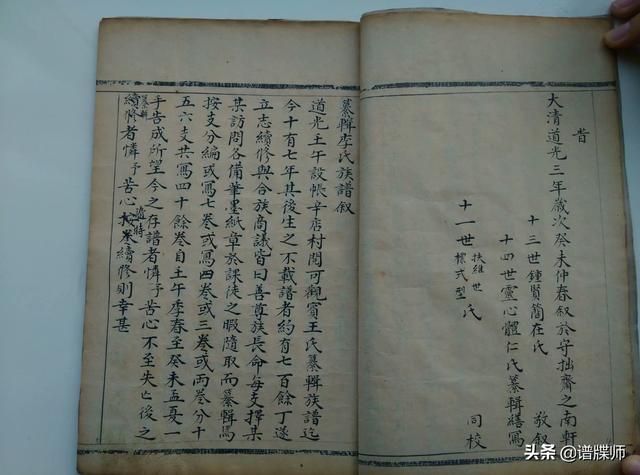 昔
大清道光三年歲次癸未仲春叙於守拙齋之南軒
十三世鍾賢簡在氏 敬叙
十四世靈心體仁氏纂輯繕寫
十一世 扶維世 標式型 氏 同校
纂輯李氏族譜叙
道光壬午設帳辛店村間可觀賓王氏纂輯族譜迄
今十有七年其後生之不載譜者約有七百餘丁遂
立志續修與合族商議皆曰善尊族長命每支擇某
某訪問各備筆墨紙章於課徒之暇隨取而纂輯焉
按支分編或寫七卷或寫四卷或三卷或兩卷分十
五六支共寫四十餘卷自壬午季春至癸未孟夏一
手告成所望今之存譜者憐予苦心不至失亡後之
纂輯
續修者憐予苦心續修則幸甚
头条 @谱牒师